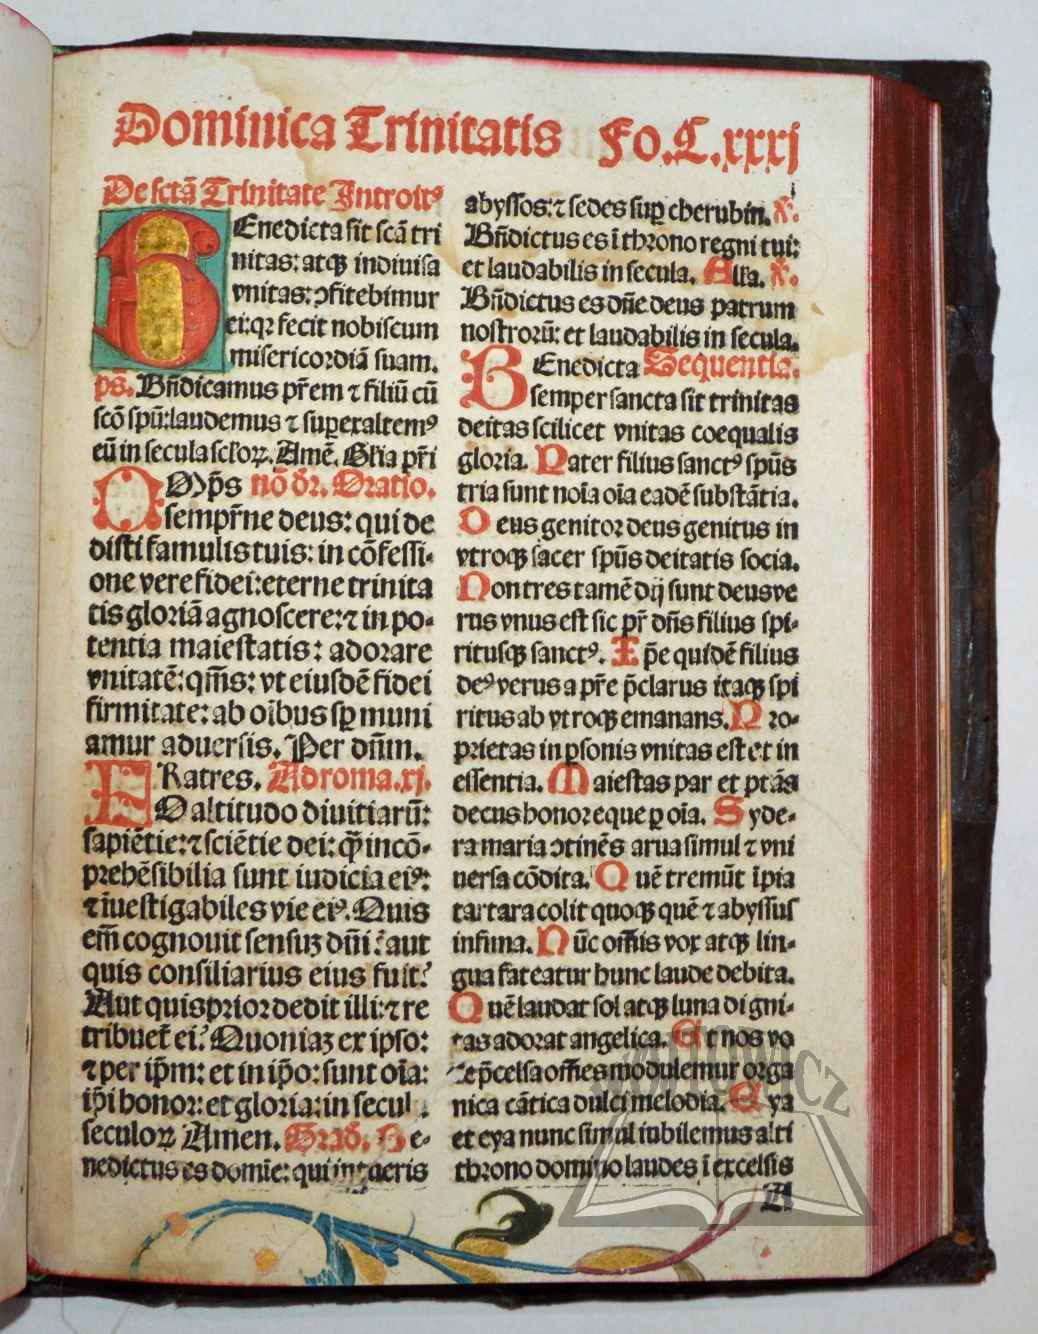 Dominica Trinitatis Fo.C.xxxj
De sctã Trinitate Introitꝰ
BEnedicta sit scã tri
nitas: atqꝫ indiuisa
vnitas: ↄfitebimur
ei: qꝛ fecit nobiscum
misericordiã suam.
ps̃. Bñdicamus pr̃em ⁊ filiũ cũ
scõ spũ: laudemus ⁊ superexaltemꝰ
eũ in secula sclꝛoꝝ. Amẽ. Gl'ia pr̃i
OMp̃s nõ dr̃. Oratio.
sempr̃ne deus: qui de
disti famulis tuis: in cõfessi-
one vere fidei: eterne trinita
tis gloriã agnoscere: ⁊ in po-
tentia maiestatis: adorare
vnitatẽ: qm̃s: vt eiusdẽ fidei
firmitate: ab oĩbus sꝑ muni
amur aduersis. Per dñm.
FRatres. Ad roma. xj.
O altitudo diuitiarũ:
sapiẽtie: ⁊ sciẽtie dei: q̃ꝫ incõ-
prehẽsibilia sunt iudicia eiꝰ:
⁊ ĩuestigabiles vie eiꝰ. Quis
em̃ cognouit sensuꝫ dñi: aut
quis consiliarius eius fuit?
Aut quis prior dedit illi: ⁊ re
tribuet̃ ei? Quoniaꝫ ex ipso:
⁊ per ip̃m: et in ip̃o: sunt oĩa:
ip̃i honor: et gloria: in secul
seculoꝝ Amen. Grad̃. Be-
nedictus es domĩe: qui intueris
abyssos: ⁊ sedes suꝑ cherubin. ℣.
Bñdictus es ĩ throno regni tui:
et laudabilis in secula. Alla. ℣.
Bñdictus es dñe deus patrum
nostrorũ: et laudabilis in secula.
BEnedicta Sequentia.
semper sancta sit trinitas
deitas scilicet vnitas coequalis
gloria. Pater filius sanctꝰ spũs
tria sunt noĩa oĩa eadẽ substãtia.
Deus genitor deus genitus in
vtroqꝫ sacer spũs deitatis socia.
Non tres tamẽ dij sunt deus ve
rus vnus est sic pr̃ dñs filius spi-
ritusqꝫ sanctꝰ. Ip̃e quidẽ filius
deꝰ verus a pr̃e p̃clarus itaqꝫ spi
ritus ab vtroqꝫ emanans. Pro-
prietas in ꝑsonis vnitas est et in
essentia. Maiestas par et ptãs
decus honor eque ꝑ oĩa. Syde-
ra maria ↄtinẽs arua simul ⁊ vni
uersa cõdita. Quẽ tremũt ĩpia
tartara colit quoqꝫ quẽ ⁊ abyssus
infima. Nũc om̃is vox atqꝫ lin-
gua fateatur hunc laude debita.
Quẽ laudat sol atqꝫ luna digni-
tas adorat angelica. Et nos vo
ce p̃celsa om̃es modulemur orga
nica cãtica dulci melodia. Eya
et eya nunc simul iubilemus alti
throno domino laudes ĩ excelsis
A
WÓJTOWICZ